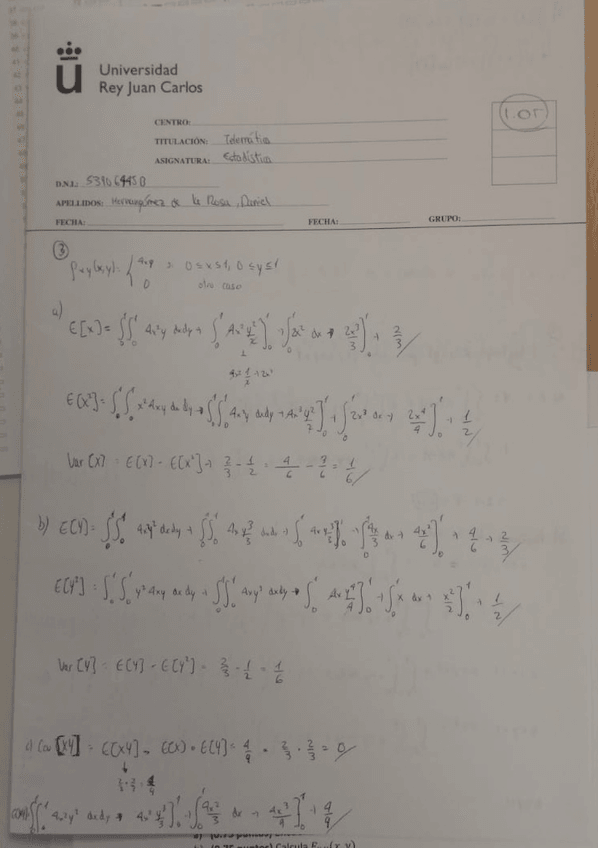 Universidad
Rey Juan Carlos
1.05
CENTRO:
TITULACIÓN: Telemática
ASIGNATURA: Estadística
D.N.I.:
APELLIDOS: de la Rosa, Daniel
FECHA: FECHA: GRUPO:
③
f x,y(x,y) = { 4xy ; 0≤x≤1, 0≤y≤1
0 otro caso
a)
E[X] = ∫₀¹∫₀¹ 4x²y dxdy → ∫₀¹ 4x² y²/2 ]₀¹ → ∫₀¹ 2x² dx → 2x³/3 ]₀¹ → 2/3
E[X²] = ∫₀¹∫₀¹ x² 4xy dx dy → ∫₀¹∫₀¹ 4x³y dxdy → 4x³ y²/2 ]₀¹ → ∫₀¹ 2x³ dx → 2x⁴/4 ]₀¹ → 1/2
Var[X] = E[X] - E[X²] → 2/3 - 1/2 = 4/6 - 3/6 = 1/6
b) E[Y] = ∫₀¹∫₀¹ 4xy² dxdy → ∫₀¹∫₀¹ 4x y³/3 dxdy → ∫₀¹ 4x y³/3 ]₀¹ → ∫₀¹ 4x/3 dx → 4x²/6 ]₀¹ → 4/6 → 2/3
E[Y²] = ∫₀¹∫₀¹ y² 4xy dx dy → ∫₀¹∫₀¹ 4xy³ dxdy → ∫₀¹ 4x y⁴/4 ]₀¹ → ∫₀¹ x dx → x²/2 ]₀¹ → 1/2
Var[Y] = E[Y] - E[Y²] = 2/3 - 1/2 = 1/6
c) Cov[XY] = E[XY] - E(X) · E[Y] = 4/9 - 2/3 · 2/3 = 0
2/3 · 2/3 = 4/9
∫₀¹∫₀¹ 4x²y² dxdy → 4x² y³/3 ]₀¹ → ∫₀¹ 4x²/3 dx → 4x³/9 ]₀¹ → 4/9
(0.75 puntos) Calcula